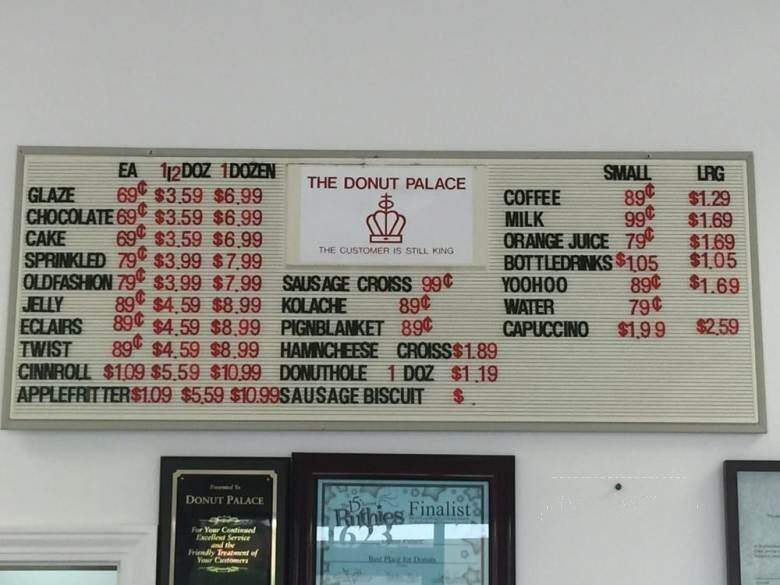 EA 1|2DOZ 1DOZEN
GLAZE 69¢ $3.59 $6.99
CHOCOLATE 69¢ $3.59 $6.99
CAKE 69¢ $3.59 $6.99
SPRINKLED 79¢ $3.99 $7.99
OLDFASHION 79¢ $3.99 $7.99
JELLY 89¢ $4.59 $8.99
ECLAIRS 89¢ $4.59 $8.99
TWIST 89¢ $4.59 $8.99
CINNROLL $1.09 $5.59 $10.99
APPLEFRITTER $1.09 $5.59 $10.99
THE DONUT PALACE
THE CUSTOMER IS STILL KING
SAUSAGE CROISS 99¢
KOLACHE 89¢
PIGNBLANKET 89¢
HAMNCHEESE CROISS $1.89
DONUTHOLE 1 DOZ $1.19
SAUSAGE BISCUIT $ .
SMALL LRG
COFFEE 89¢ $1.29
MILK 99¢ $1.69
ORANGE JUICE 79¢ $1.69
BOTTLEDRINKS $1.05 $1.05
YOOHOO 89¢ $1.69
WATER 79¢
CAPUCCINO $1.99 $2.59
Presented To
DONUT PALACE
For Your Continued
Excellent Service
and the
Friendly Treatment of
Your Customers
Ruthies Finalist
Best Place for Donuts